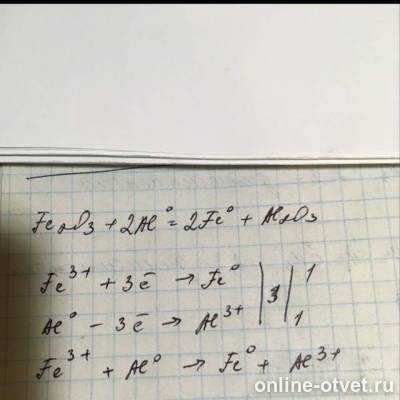 Fe₂O₃ + 2Al⁰ = 2Fe⁰ + Al₂O₃
Fe³⁺ + 3ē → Fe⁰ | 3 | 1
Al⁰ - 3ē → Al³⁺ | | 1
Fe³⁺ + Al⁰ → Fe⁰ + Al³⁺
online-otvet.ru